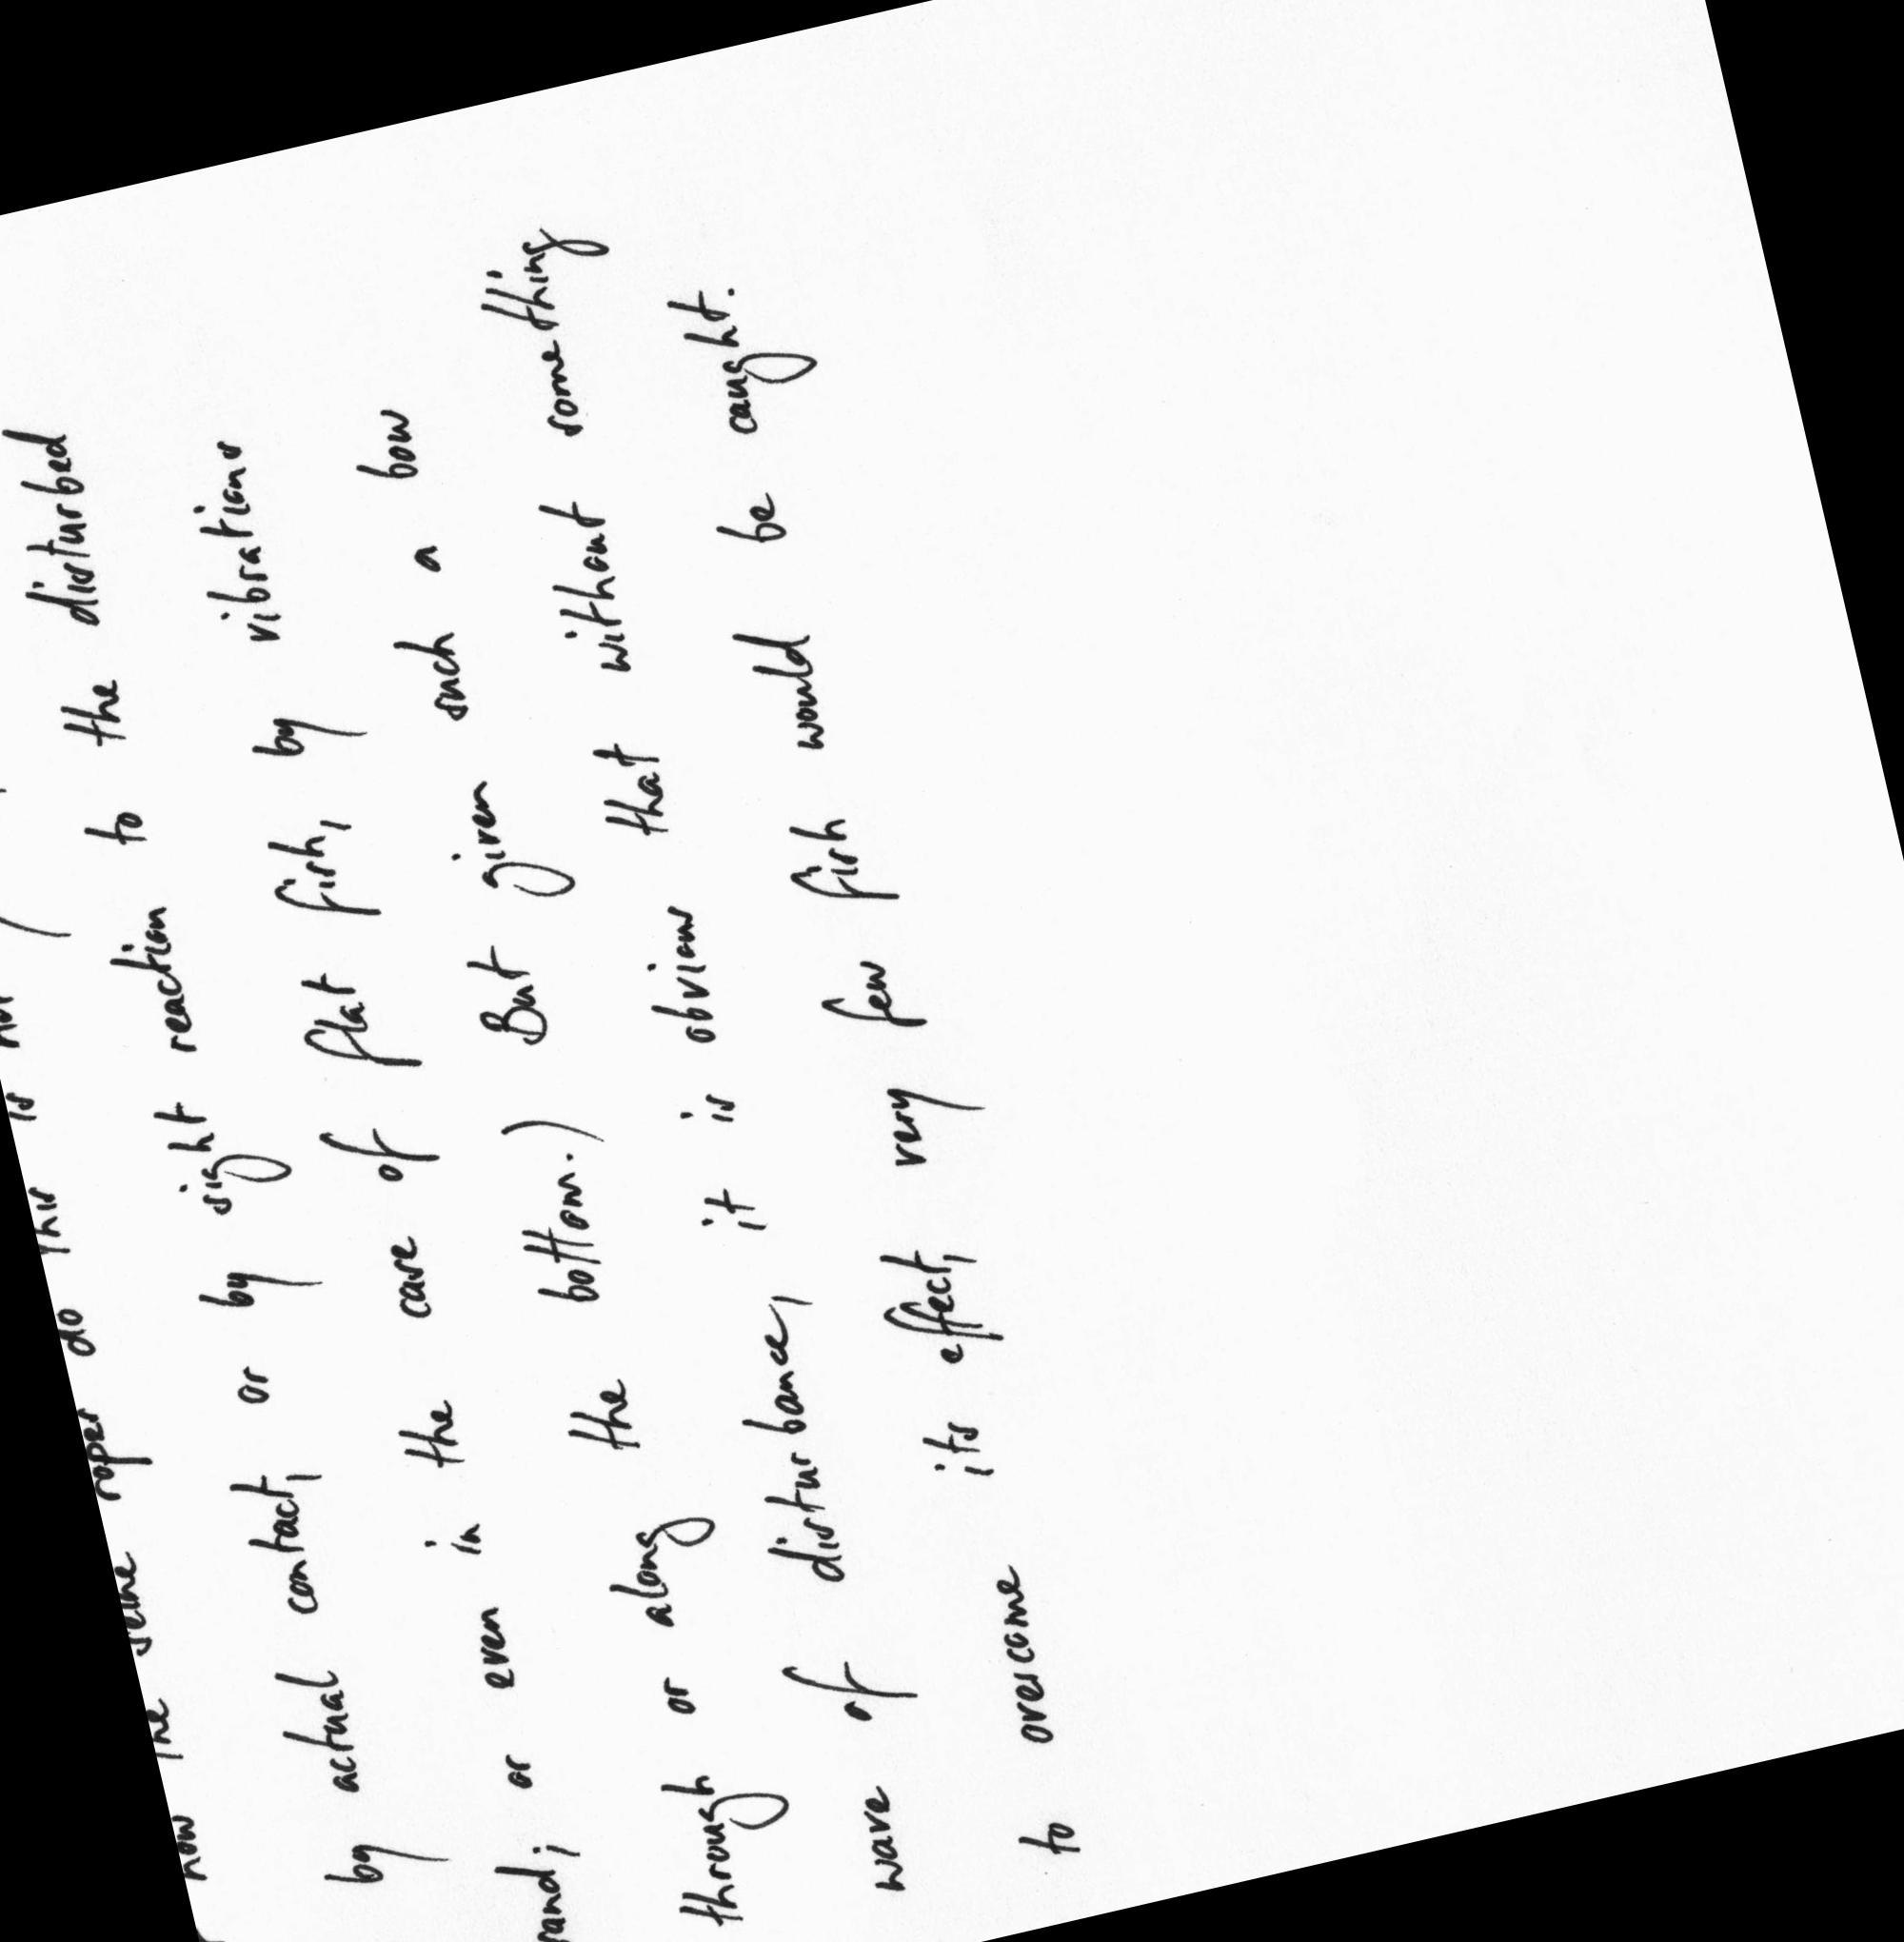 how the seine ropes do this is
by actual contact, or by sight reaction to the disturbed
sand; or even in the case of flat fish, by vibrations
through or along the bottom.) But given such a bow
wave of disturbance, it is obvious that without something
to overcome its effect, very few fish would be caught.